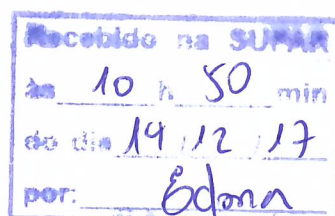 Recebido na SUPAR
às 10 h 50 min
do dia 14/12/17
por: Edna